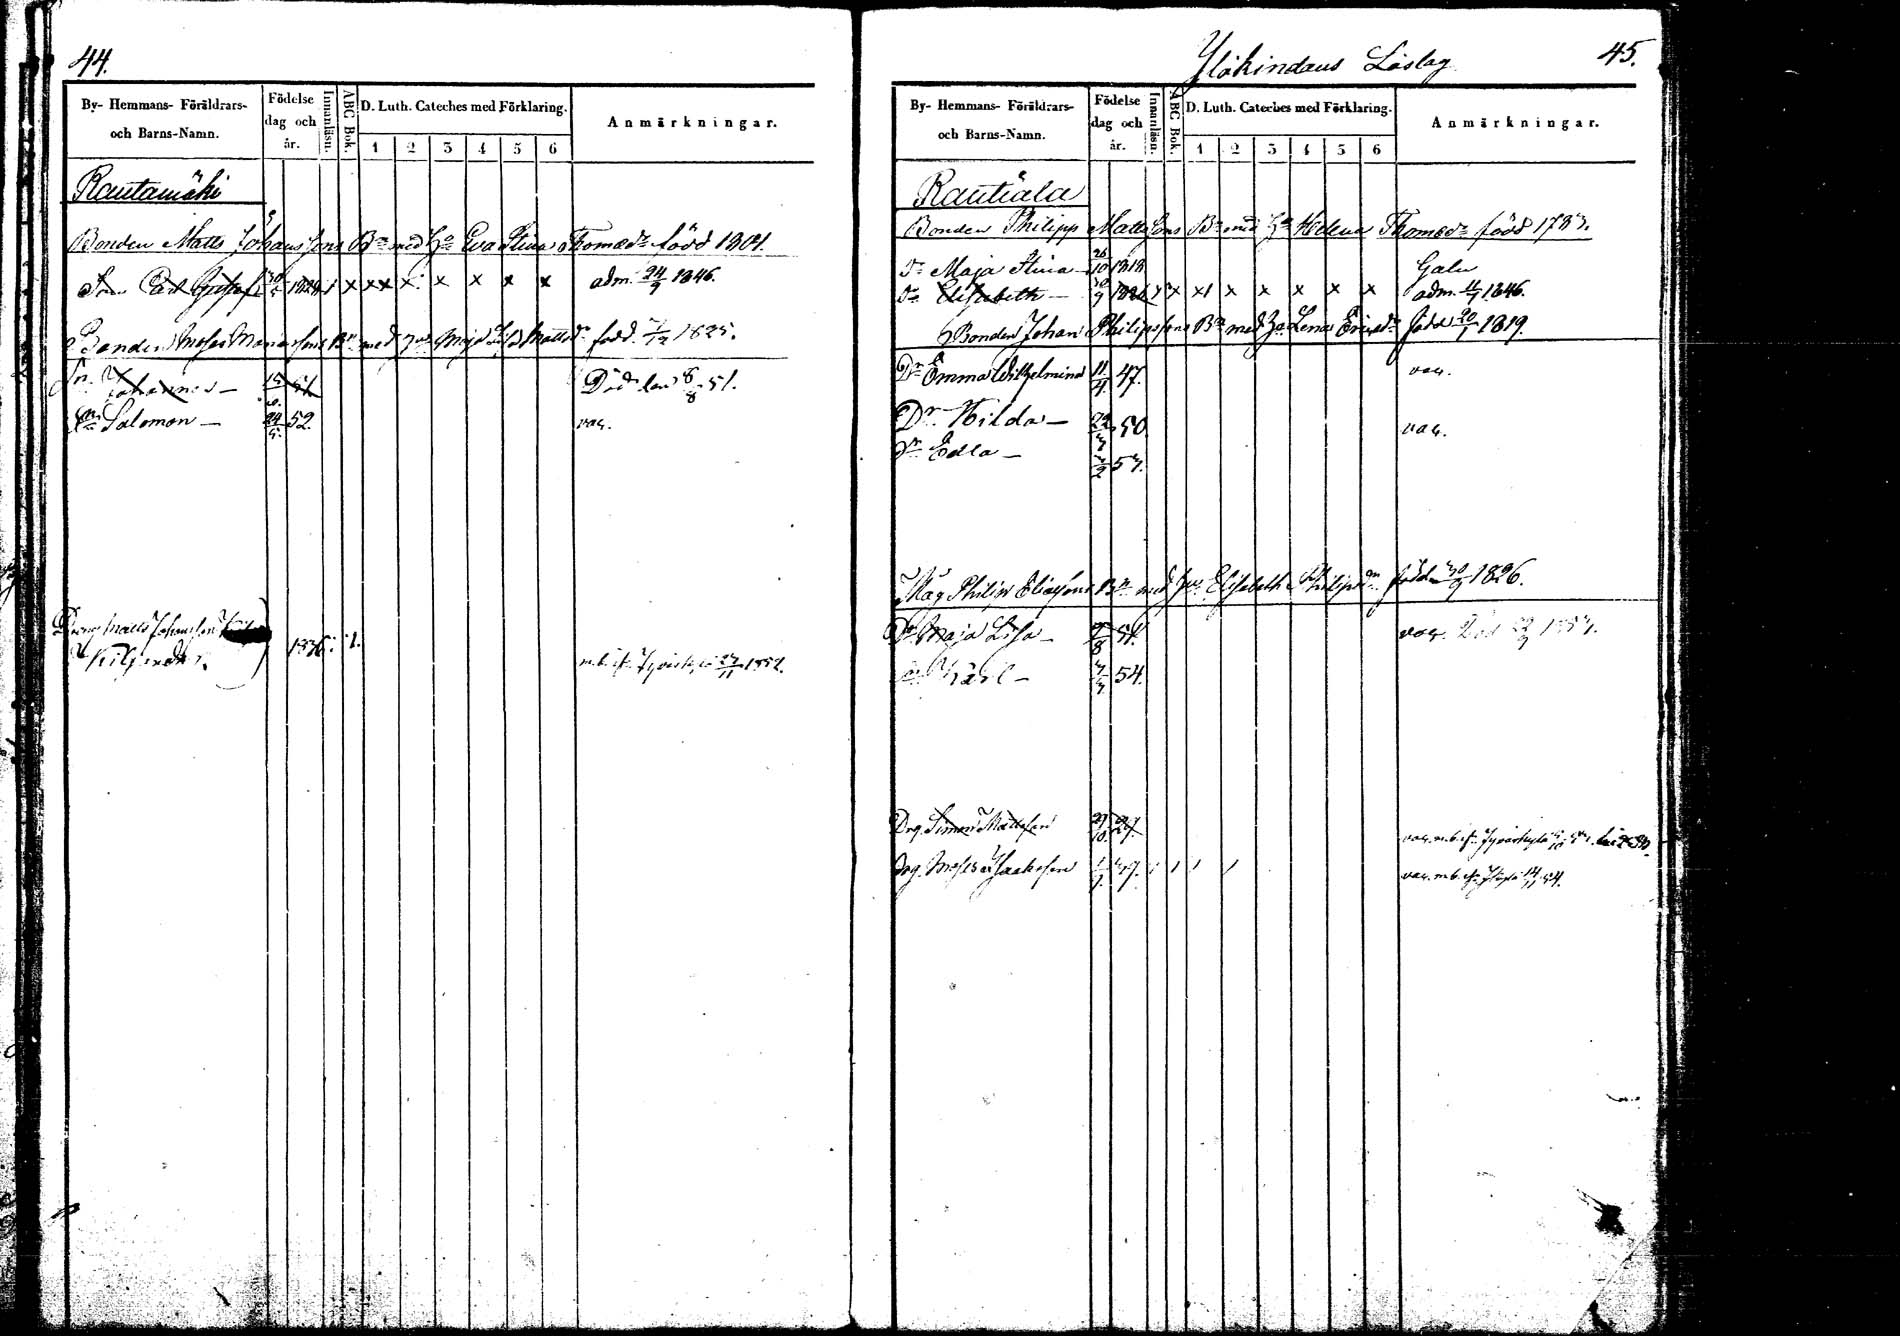 44.
By- Hemmans- Föräldrars- och Barns-Namn.
Födelse dag och år.
Innanläsn.
ABC Bok.
D. Luth. Cateches med Förklaring.
1 2 3 4 5 6
Anmärkningar.
Rautamäki
Bonden Matts Johanssons Bn med Ho Eva Stina Thomædr född 1801.
Son Carl Gustaf 1828 x xx x x x x x adm. 24/9 1846.
Bonden Moses Bn med Maja Lisa Mattsdr född 1825.
Sn. Johannes — 51 Död den 8/8 51.
Sn Salomon — 24/5 52. vac.
Dreng Matts Johansson
Kiljander. 1836. 1.
m. b. fr. Jyväskylä 1852.
Yläkindaus Läslag
45.
By- Hemmans- Föräldrars- och Barns-Namn.
Födelse dag och år.
Innanläsn.
ABC Bok.
D. Luth. Cateches med Förklaring.
1 2 3 4 5 6
Anmärkningar.
Rautiala
Bonden Philipp Mattssons Bn med Ho Helena Thomædr född 1783.
Dr Maja Stina — 26/10 1818 Galen
Dr Elisabeth — 30/9 1826 x x x x x x x adm. 1846.
Bonden Johan Philipssons Bn med Ho Lena Ericsdr född 20/1 1819.
Dr Emma Wilhelmina 11/4 47. vac.
Dr Hilda — 50. vac.
Dr Edla — 57.
Måg Philip Eliassons Bn med Elisabeth Philipsdr född 30/9 1826.
Dr Maja Lisa — 51. vac. Död
Karl — 54.
Drg. Simon Mattsson 27. vac. m. b. fr. Jyväskylä
Drg. Moses Isaksson 37. vac. m. b. fr. 54.